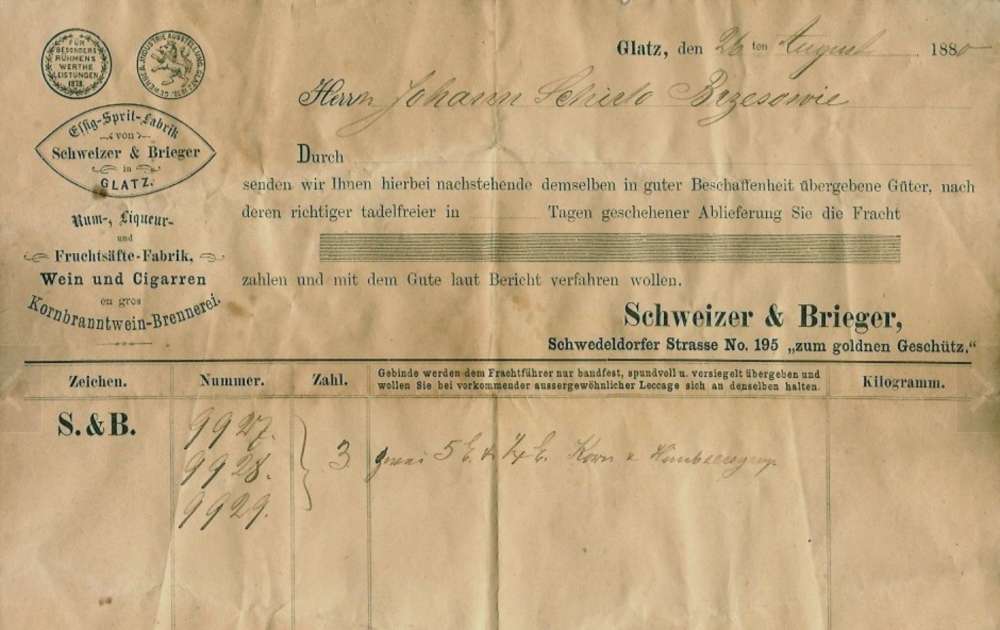 FÜR
BESONDERS
RÜHMENS
WERTHE
LEISTUNGEN
1878.
GEWERBE & INDUSTRIE AUSSTELLUNG GLATZ 1878.
Glatz, den 26 ten August 1880
Herrn Johann Schielo Brzesowie
Essig-Sprit-Fabrik
von
Schweizer & Brieger
in
GLATZ.
Rum-, Liqueur-
und
Fruchtsäfte-Fabrik,
Wein und Cigarren
en gros
Kornbranntwein-Brennerei.
Durch
senden wir Ihnen hierbei nachstehende demselben in guter Beschaffenheit übergebene Güter, nach
deren richtiger tadelfreier in Tagen geschehener Ablieferung Sie die Fracht
zahlen und mit dem Gute laut Bericht verfahren wollen.
Schweizer & Brieger,
Schwedeldorfer Strasse No. 195 „zum goldnen Geschütz.“
Zeichen. Nummer. Zahl. Gebinde werden dem Frachtführer nur bandfest, spundvoll u. versiegelt übergeben und Kilogramm.
wollen Sie bei vorkommender aussergewöhnlicher Leccage sich an denselben halten.
S. & B. 9927.
9928. 3 zwei Korn
9929.